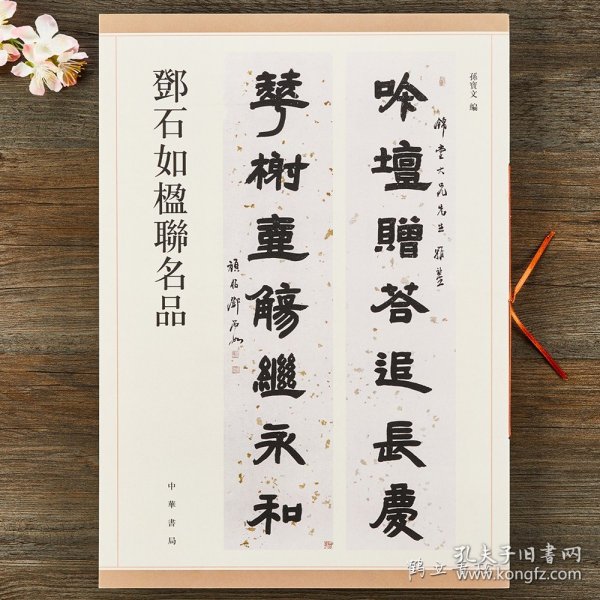 孫寶文 編
錦堂大兄先生雅鑒
吟壇贈荅追長慶
華榭壺觴繼永和
頑伯鄧石如
鄧石如楹聯名品
中華書局
孔夫子旧書网
www.kongfz.com